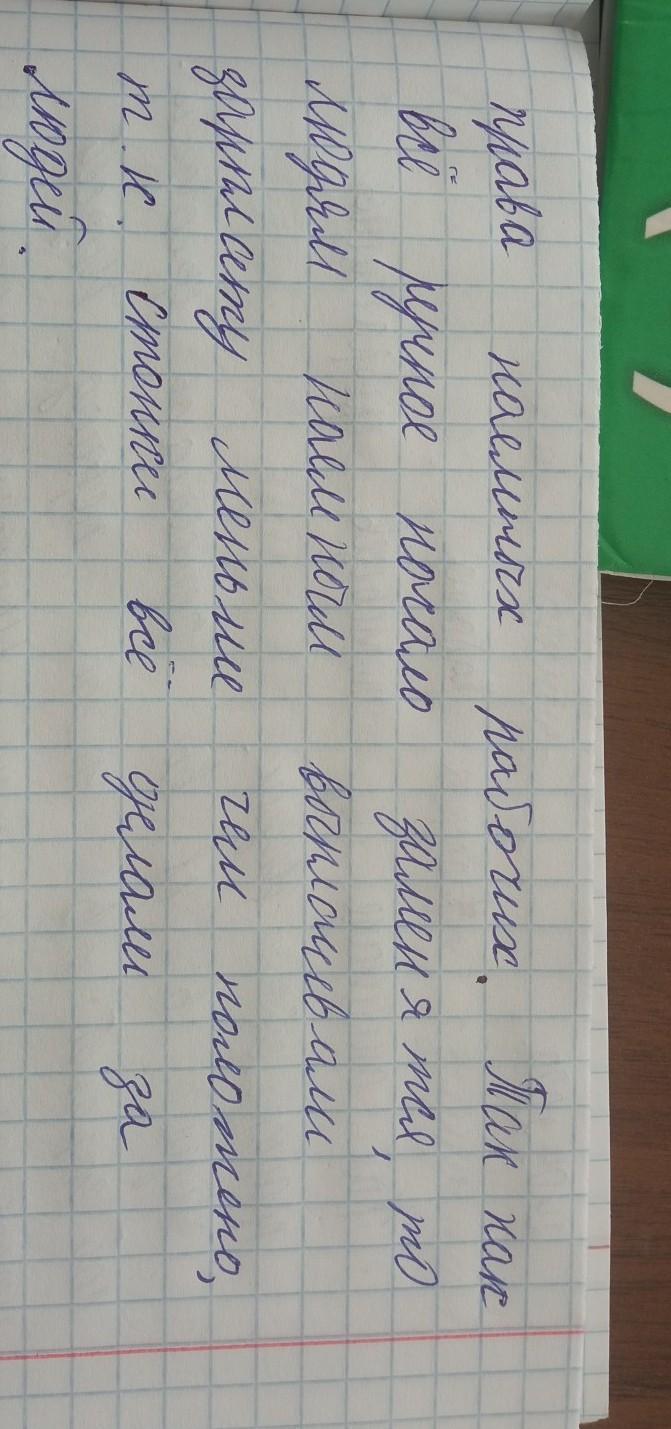 права наемных рабочих. Так как
всё ручное начало заменятся, то
людям наемным выплачевали
зарплату меньше чем положено,
т.к. станки всё делали за
людей.